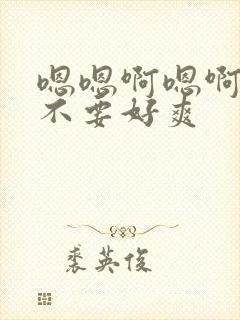 嗯嗯啊嗯啊
不要好爽
裘英俊